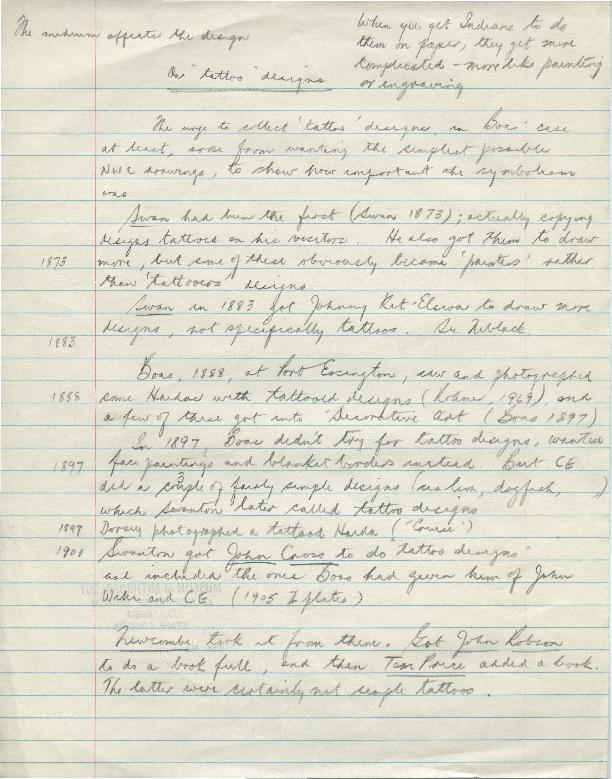 The medium affects the design
When you get Indians to do
them on paper, they get more
complicated - more like painting
or engraving
On "tattoo" designs
The urge to collect 'tattoo' designs, in Boas' case
at least, arose from wanting the simplest possible
NWC drawings, to show how important the symbolism
was.
Swan had been the first (Swan 1873); actually copying
designs tattooed on his visitors. He also got them to draw
1873 more, but some of these obviously became 'painters' rather
than 'tattooers' designs.
Swan in 1883 got Johnny Kit-Elswa to draw more
designs, not specifically tattoos. See Niblack.
1883
Boas, 1888, at Port Essington, saw and photographed
1888 some Haidas with tattooed designs (Rohner, 1969), and
a few of these got into "Decorative Art (Boas 1897)
In 1897, Boas didn't try for tattoo designs, wanted
1897 face paintings and blanket borders instead. But CE
did a couple of fairly simple designs (sea lion, dogfish, )
3
which Swanton later called tattoo designs
1897 Dorsey photographed a tattooed Haida ("Cruise")
1901 Swanton got John Cross to do "tattoo designs"
and included the ones Boas had given him of John
Wiki and CE (1905 plates)
Newcombe took it from there. Got John Robson
to do a book full, and then Tom Price added a book.
The latter were certainly not simple tattoos.